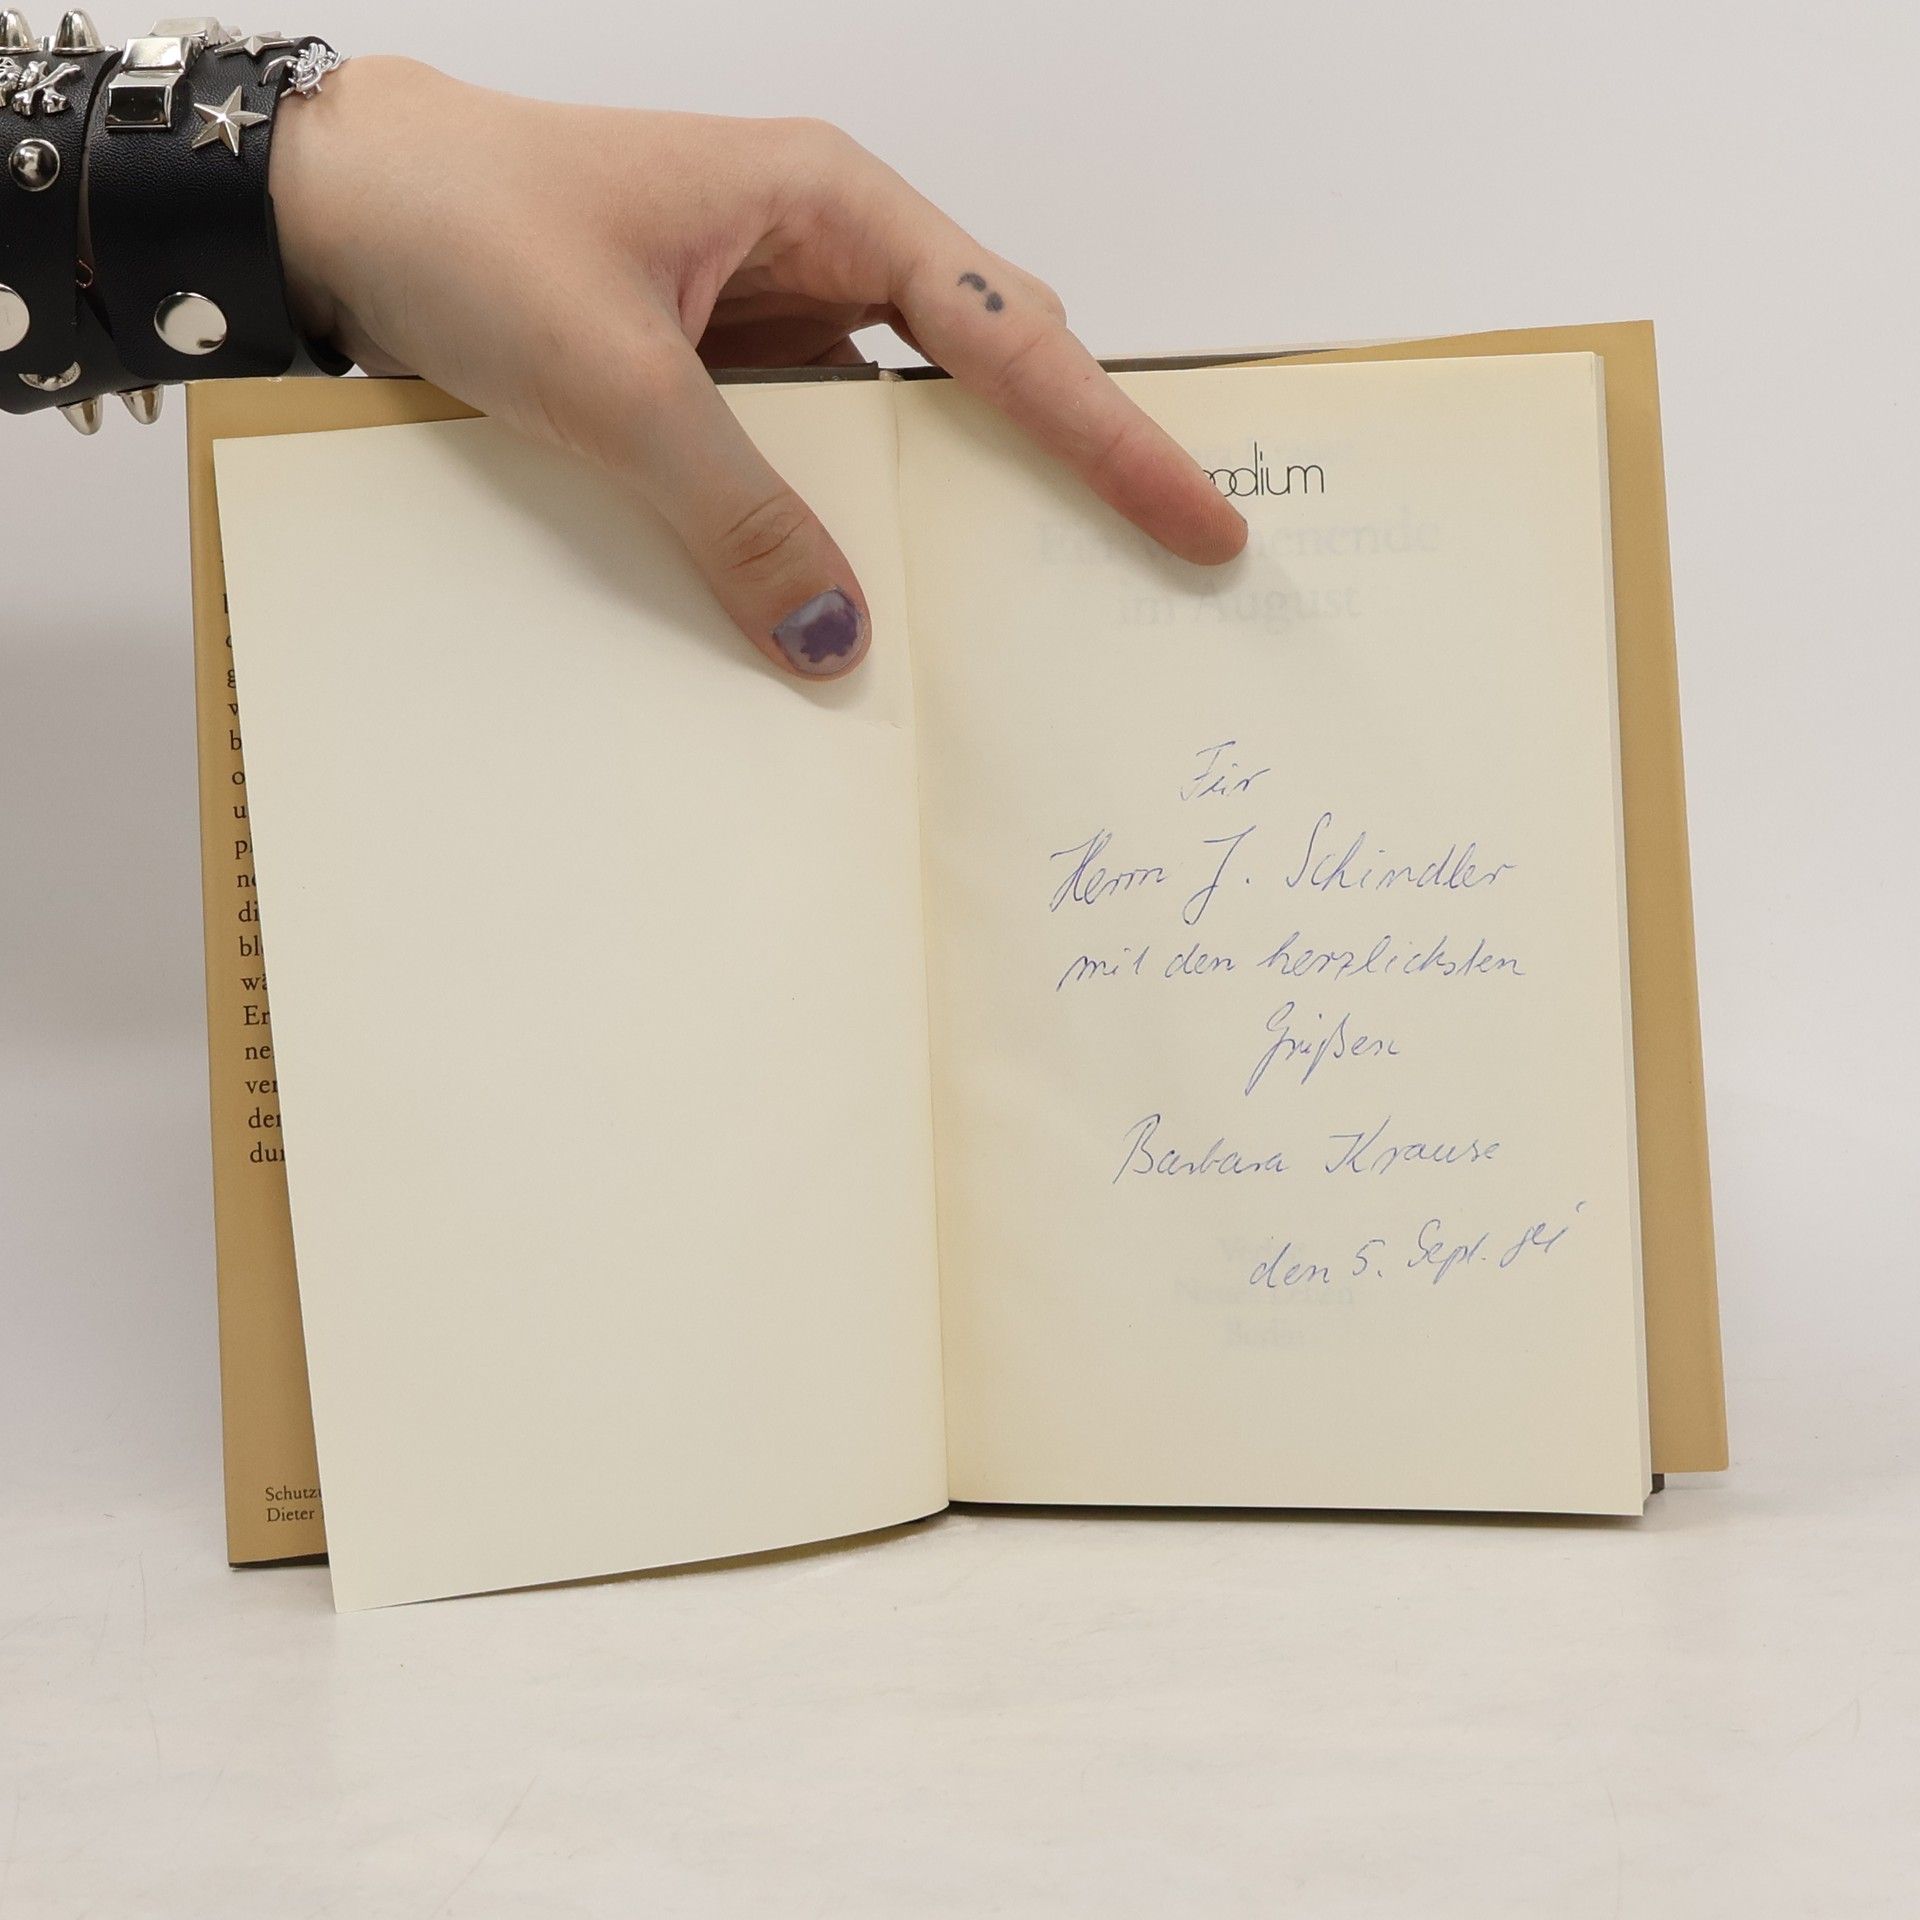 podium
im August
Für
Herrn J. Schindler
mit den herzlichsten
Grüßen
Barbara Krause
den 5. Sept.
Berlin
g
w
b
o
u
pl
ne
di
bl
wä
Er
ne
ver
der
dur
Schutzu
Dieter